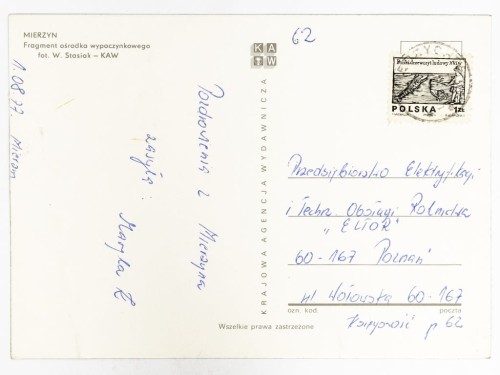 MIERZYN
Fragment ośrodka wypoczynkowego
fot. W. Stasiak – KAW
11.08.77. Mierzyn
Pozdrowienia z Mierzyna
zasyła:
Maryla K
KATW
KRAJOWA AGENCJA WYDAWNICZA
62
POLSKA 1zł
Przedsiębiorstwo Elektryfikacji
i Techn. Obsługi Rolnictwa
„ELTOR”
60-167 Poznań
ul Wołowska 60-167
ozn. kod poczta
p 62
Wszelkie prawa zastrzeżone